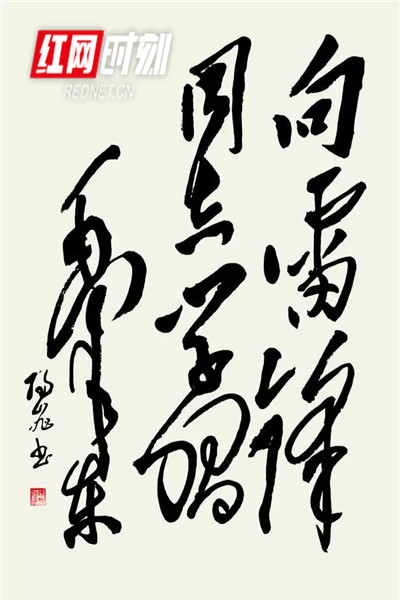 红网时刻
REDNET.CN
向雷锋
同志学习
毛泽东
书